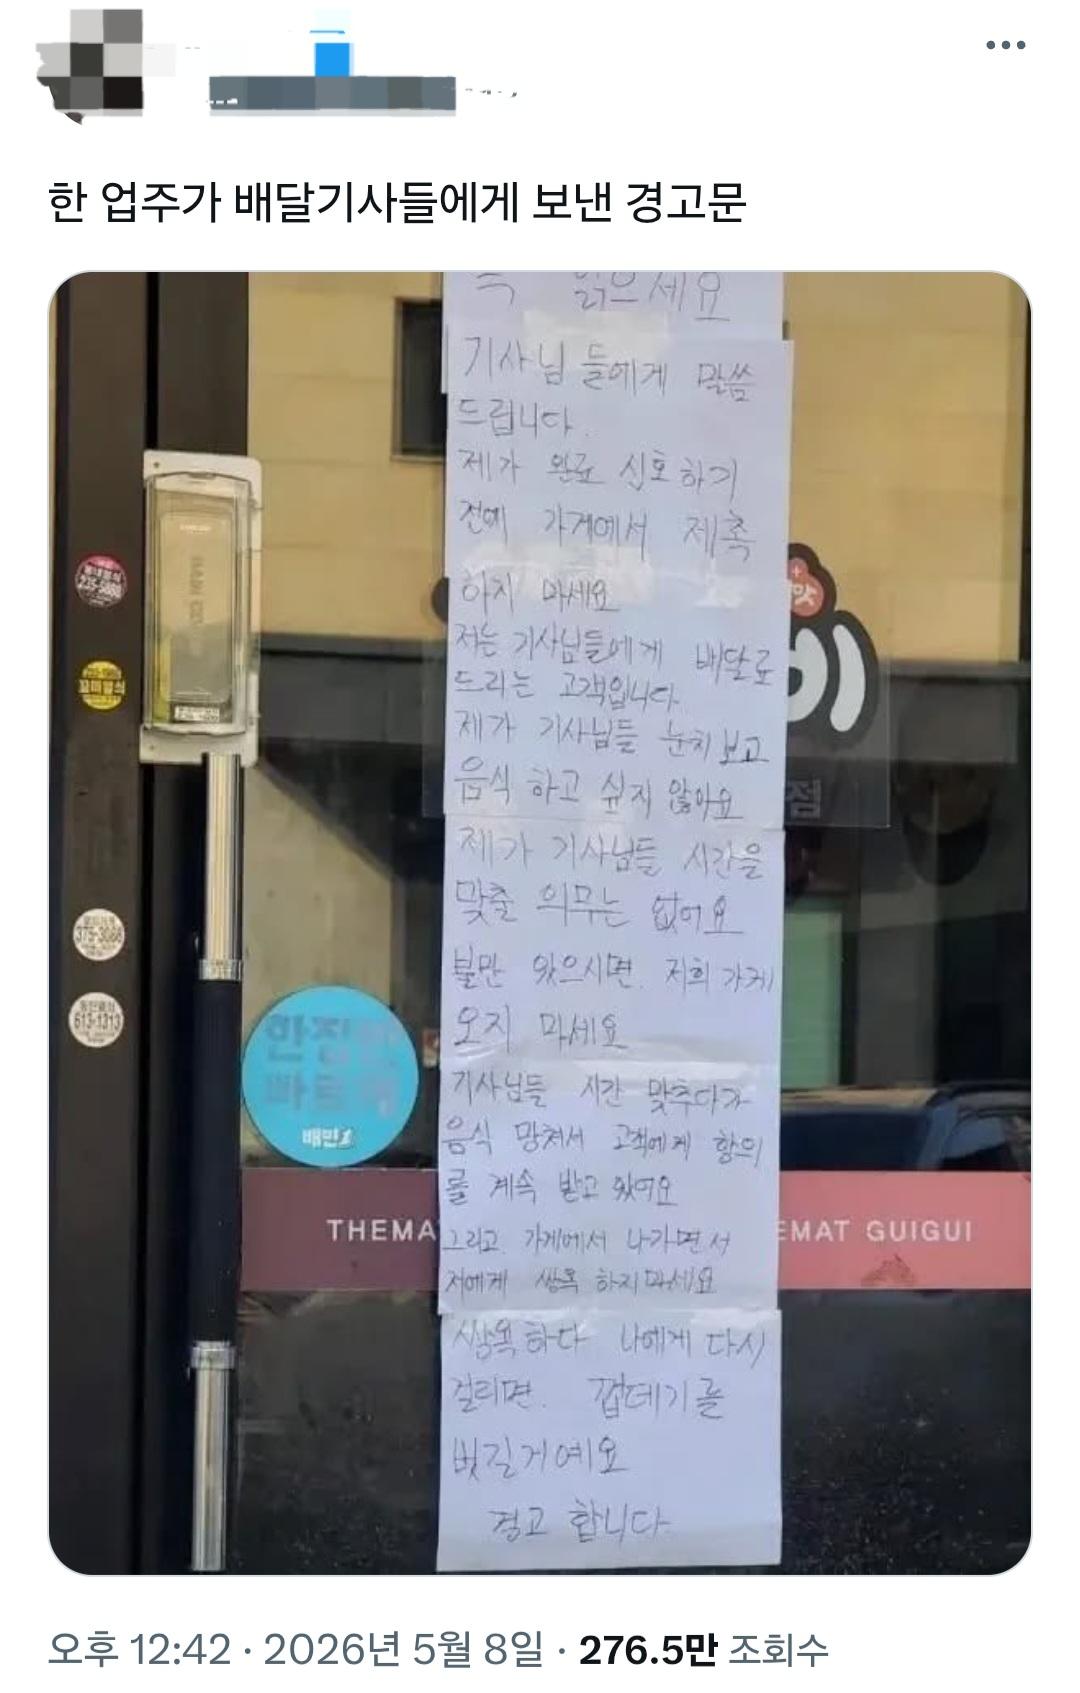 한 업주가 배달기사들에게 보낸 경고문
읽으세요
기사님들에게 말씀
드립니다.
제가 완료 신호하기
전에 가게에서 제촉
하지 마세요
저는 기사님들에게 배달료
드리는 고객입니다.
제가 기사님들 눈치보고
음식 하고 싶지 않아요
제가 기사님들 시간을
맞출 의무는 없어요
불만 있으시면. 저희 가게
오지 마세요
기사님들 시간 맞추다가
음식 망쳐서 고객에게 항의
를 계속 받고 있어요
그리고 가게에서 나가면서
저에게 쌍욕 하지마세요
쌍욕하다 나에게 다시
걸리면. 껍데기를
벗길거예요
경고 합니다
점
375-3066
613-1313
배민1
THEMA
EMAT GUIGUI
오후 12:42 · 2026년 5월 8일 · 276.5만 조회수